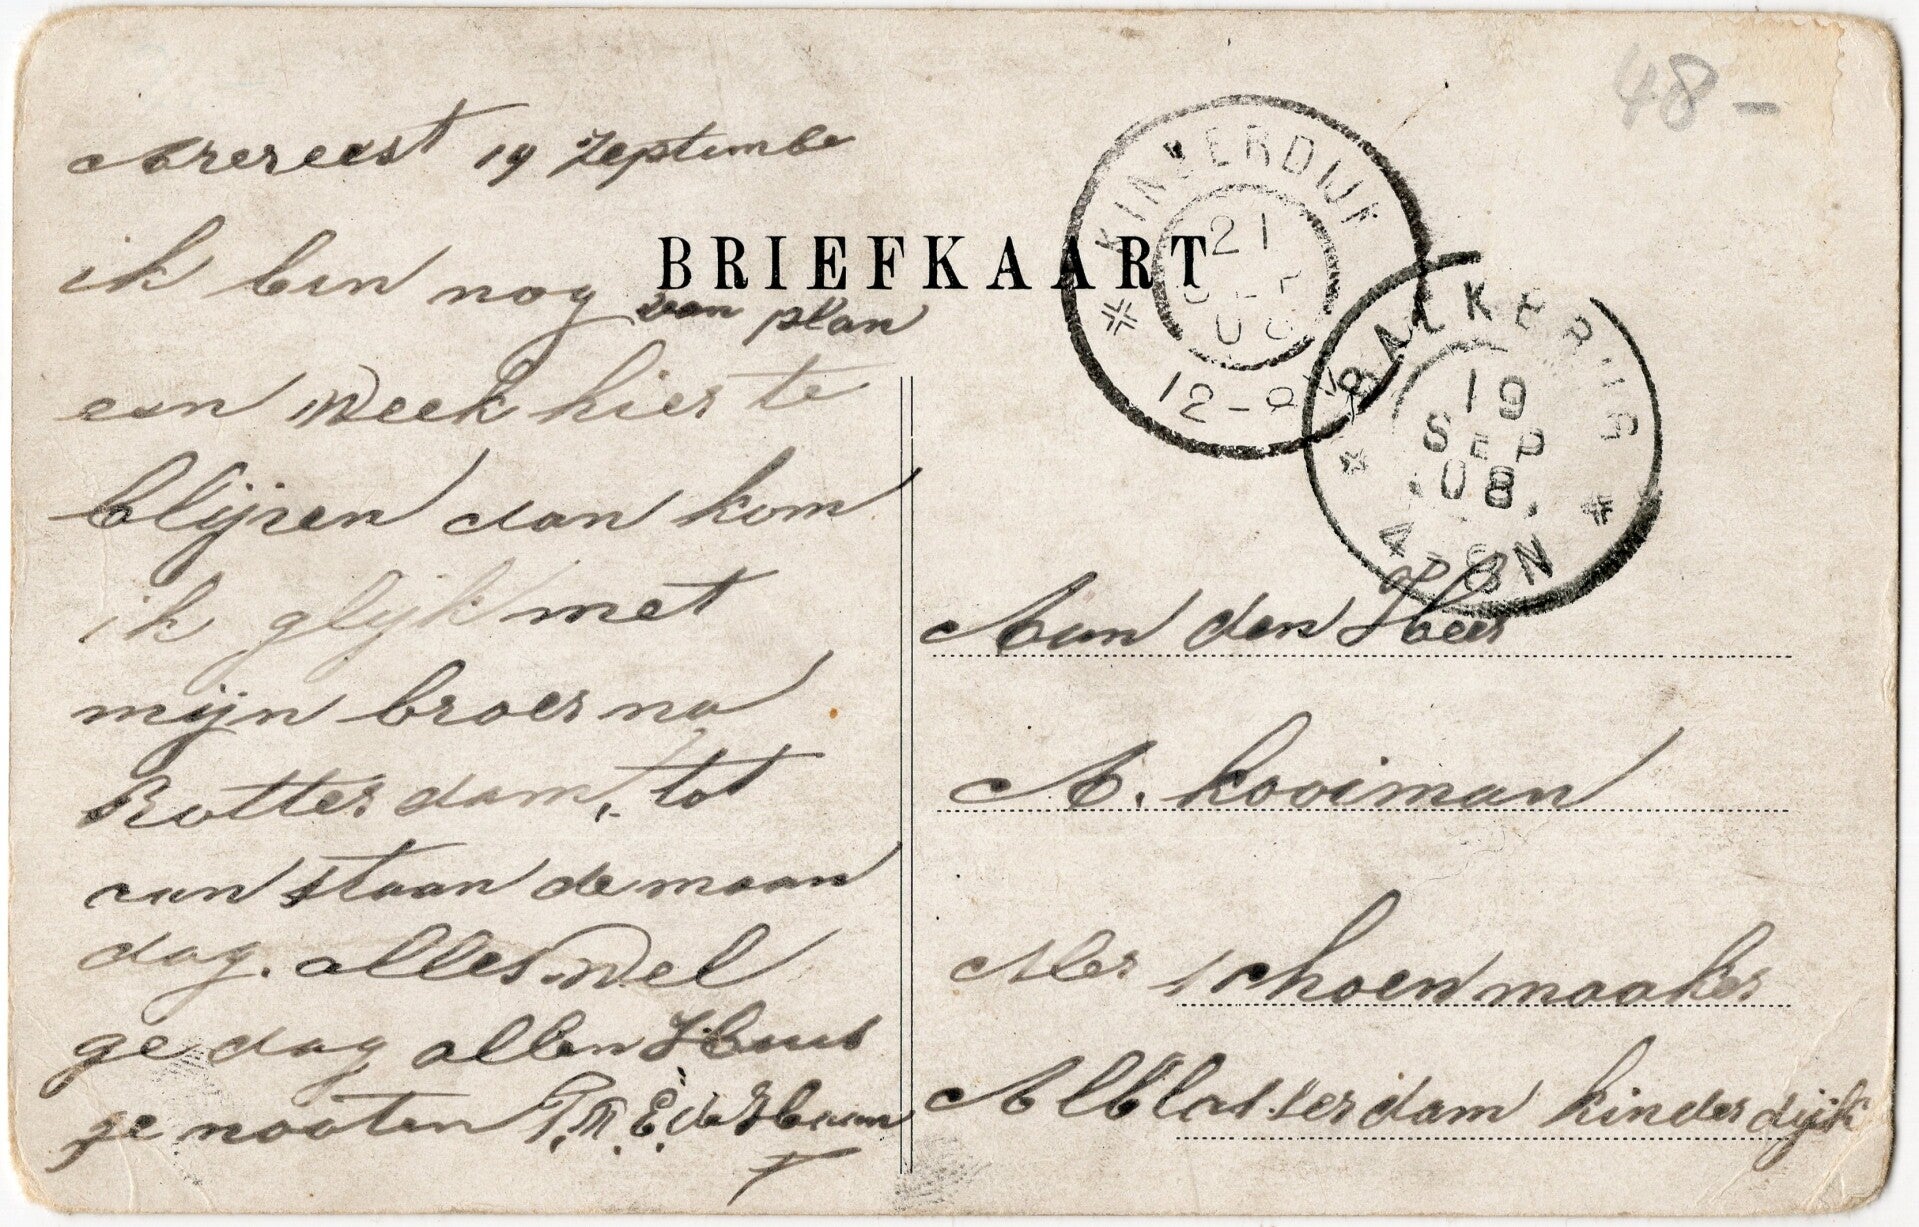 Arereest 19 Zeptembe
BRIEFKAART
ik ben nog van plan
een week hier te
blijven dan kom
ik glijk met
mijn broer na
Rotterdam, tot
van staan de maan
dag. alles wel
ge dag allen Huus
ge nooten T. M. E. de Haan
48-
KINDERDIJK
21 SEP 08
12-8N
BALKBRUG
19 SEP 08
4-8N
Aan den Heer
A. kooiman
Mer schoenmaaker
Alblasserdam kinderdijk